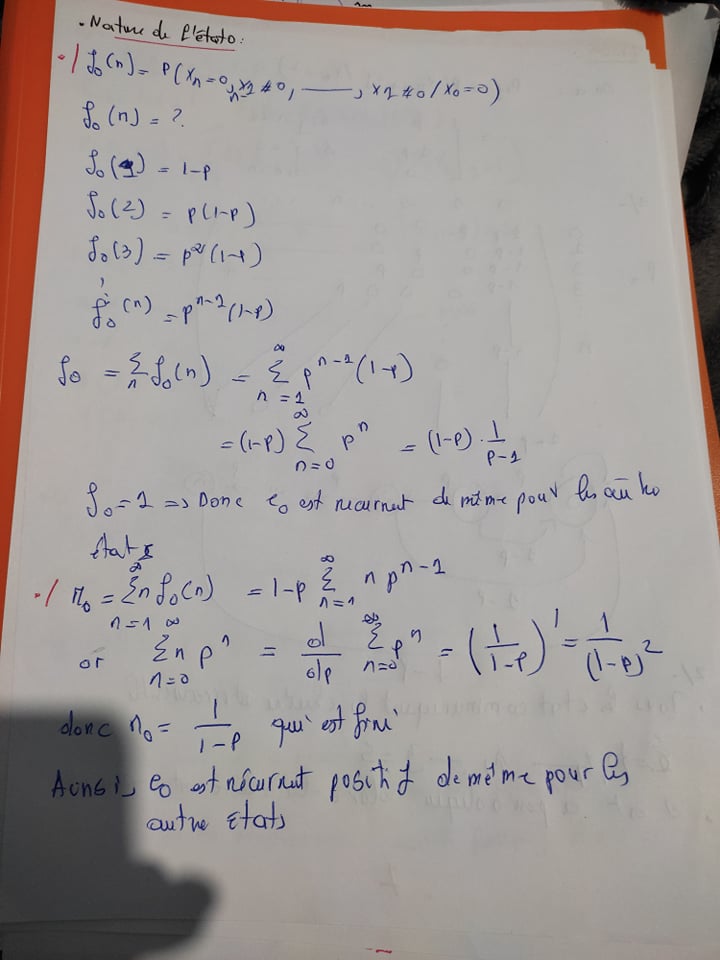 . Nature de l'états:
./ f₀(n) = P(Xn=0, Xn-1≠0, ——, X1≠0 / X0=0)
f₀(n) = ?
f₀(1) = 1-p
f₀(2) = p(1-p)
f₀(3) = p²(1-p)
f₀(n) = p^{n-1}(1-p)
f₀ = Σ_n f₀(n) = Σ_{n=1}^{∞} p^{n-1}(1-p)
= (1-p) Σ_{n=0}^{∞} p^n = (1-p) · 1/(p-1)
f₀=1 => Donc e₀ est récurrent de même pour les
états
./ n₀ = Σ_{n=1}^{∞} n f₀(n) = 1-p Σ_{n=1}^{∞} n p^{n-1}
or Σ_{n=0}^{∞} n p^n = d/dp Σ_{n=0}^{∞} p^n = (1/(1-p))' = 1/(1-p)²
donc n₀ = 1/(1-p) qui est fini
Ainsi, e₀ est récurrent positif de même pour les
autre états